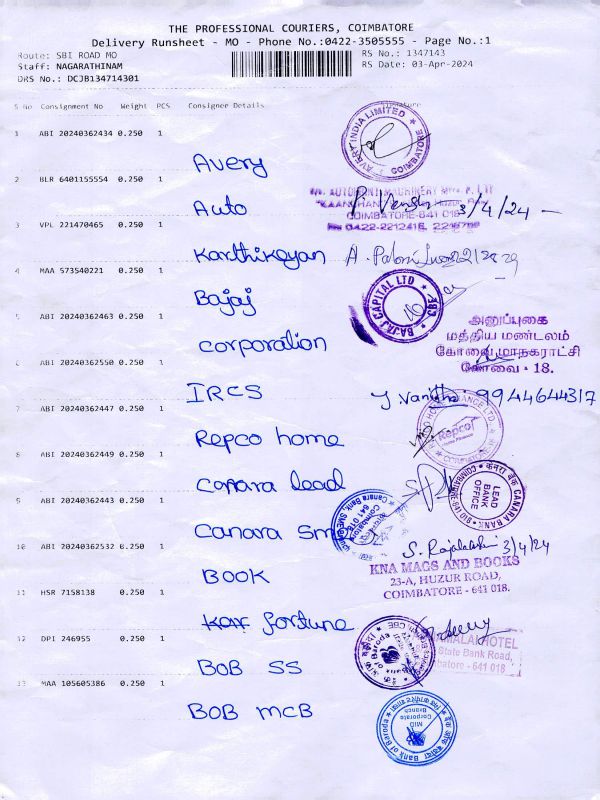 THE PROFESSIONAL COURIERS, COIMBATORE
Delivery Runsheet - MO - Phone No.:0422-3505555 - Page No.:1
Route: SBI ROAD MO
RS No.: 1347143
Staff: NAGARATHINAM
RS Date: 03-Apr-2024
DRS No.: DCJB134714301
S No Consignment No Weight PCS Consignee Details Signature
1 ABI 20240362434 0.250 1
AVERY INDIA LIMITED
COIMBATORE
Avery
2 BLR 6401155554 0.250 1
COIMBATORE-641 018
3/4/24
Auto
3 VPL 221470465 0.250 1
Karthikeyan
4 MAA 573540221 0.250 1
BAJAJ CAPITAL LTD
CBE
Bajaj
5 ABI 20240362463 0.250 1
அனுப்புகை
மத்திய மண்டலம்
கோவை மாநகராட்சி
கோவை - 18.
corporation
6 ABI 20240362550 0.250 1
IRCS
J. Vanitha 9944644317
7 ABI 20240362447 0.250 1
Repco
Home Finance
Repco home
8 ABI 20240362449 0.250 1
केनरा बैंक CANARA BANK
LEAD BANK OFFICE
canara lead
9 ABI 20240362443 0.250 1
canara
10 ABI 20240362532 0.250 1
S. Rajalakshmi 3/4/24
KNA MAGS AND BOOKS
23-A, HUZUR ROAD,
COIMBATORE - 641 018.
BOOK
11 HSR 7158138 0.250 1
fortune
12 DPI 246955 0.250 1
HOTEL
State Bank Road,
641 018
BOB SS
13 MAA 105605386 0.250 1
BOB MCB
MID
Corporate
Branch
Bank of Baroda